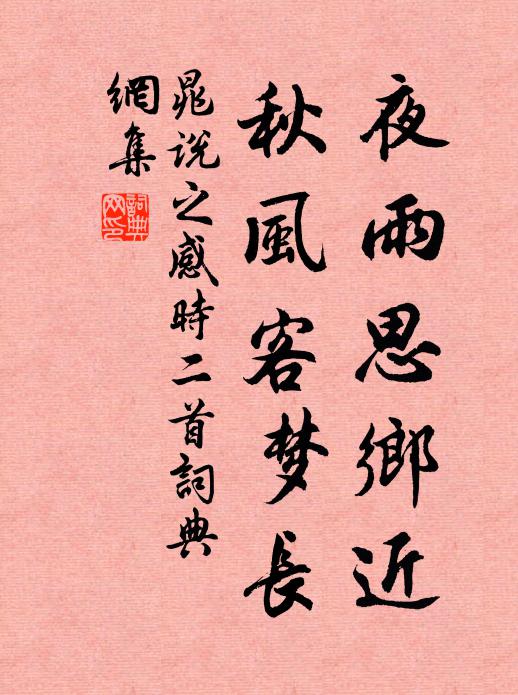 夜雨思鄉近
秋風客梦長
晁説之感時二首詞典
網集
詞典
网印